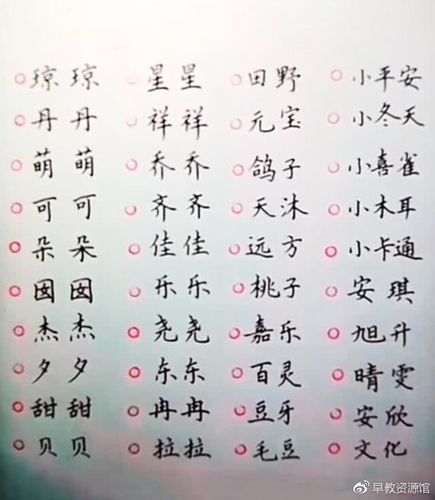 琼琼 星星 田野 小平安
丹丹 祥祥 元宝 小冬天
萌萌 乔乔 鸽子 小喜雀
可可 齐齐 天沐 小木耳
朵朵 佳佳 远方 小卡通
囡囡 乐乐 桃子 安琪
杰杰 尧尧 嘉乐 旭升
夕夕 东东 百灵 晴雯
甜甜 冉冉 豆牙 安欣
贝贝 拉拉 毛豆 文化
@早教资源馆